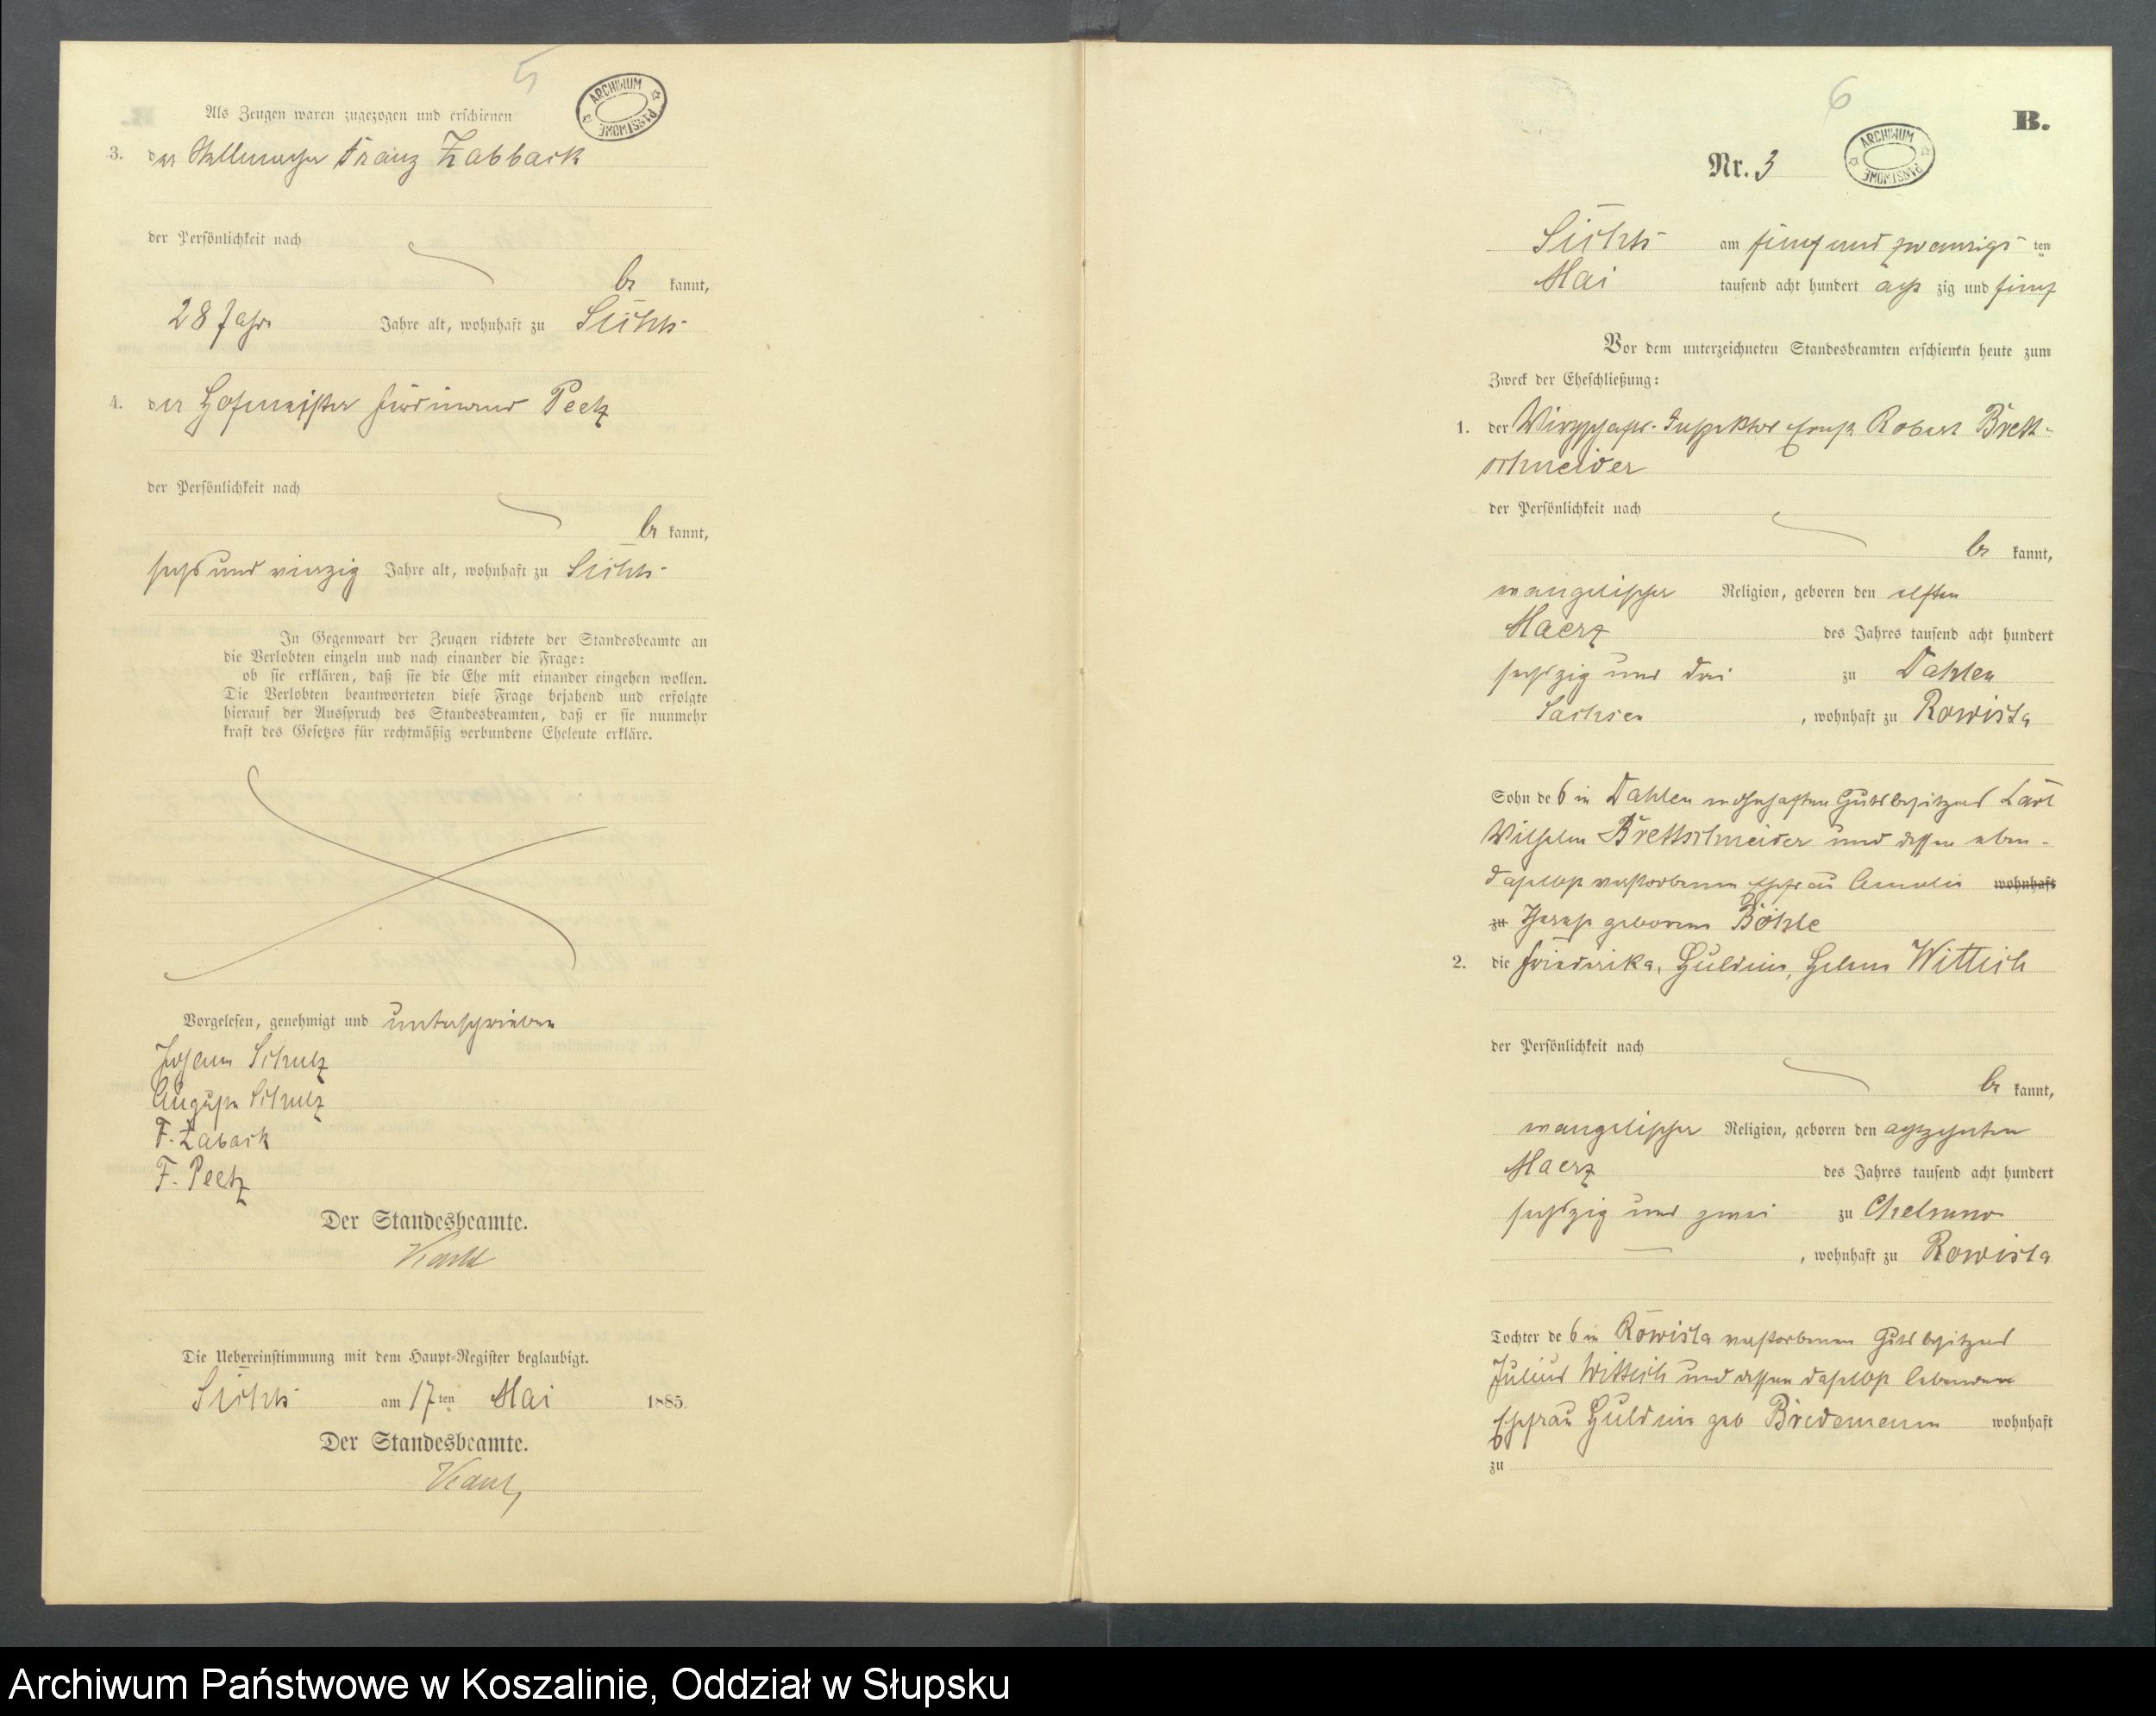 5
ARCHIWUM PAŃSTWOWE
Als Zeugen waren zugezogen und erschienen
3. der Stellmacher Franz Zabback
der Persönlichkeit nach
be kannt,
28 Jahr Jahre alt, wohnhaft zu
4. der Hofmeister Ferdinand Peetz
der Persönlichkeit nach
be kannt,
sechs und vierzig Jahre alt, wohnhaft zu
In Gegenwart der Zeugen richtete der Standesbeamte an
die Verlobten einzeln und nach einander die Frage:
ob sie erklären, daß sie die Ehe mit einander eingehen wollen.
Die Verlobten beantworteten diese Frage bejahend und erfolgte
hierauf der Ausspruch des Standesbeamten, daß er sie nunmehr
kraft des Gesetzes für rechtmäßig verbundene Eheleute erkläre.
Vorgelesen, genehmigt und unterschrieben
Johann Schulz
Schulz
F. Zaback
F. Peetz
Der Standesbeamte.
Die Uebereinstimmung mit dem Haupt-Register beglaubigt.
am 17ten Mai 1885.
Der Standesbeamte.
6
B.
Nr. 3
ARCHIWUM PAŃSTWOWE
am fünf und zwanzigs ten
Mai tausend acht hundert acht zig und fünf
Vor dem unterzeichneten Standesbeamten erschienen heute zum
Zweck der Eheschließung:
1. der Wirthschafts-Inspektor Ernst Robert Brett-
schneider
der Persönlichkeit nach
be kannt,
evangelischer Religion, geboren den elften
Maerz des Jahres tausend acht hundert
sechszig und drei zu Dahlen
Sachsen, wohnhaft zu Rowista
Sohn des in Dahlen wohnhaften Gutsbesitzers Carl
Wilhelm Brettschneider und dessen eben-
daselbst verstorbenen Ehefrau Amalie wohnhaft
zu geborene
2. die Friederika, Guldine, Helene Wittich
der Persönlichkeit nach
be kannt,
evangelischer Religion, geboren den achtzehnten
Maerz des Jahres tausend acht hundert
sechszig und zwei zu Chelmno
, wohnhaft zu Rowista
Tochter des in Rowista verstorbenen Gutsbesitzers
Julius Wittich und dessen daselbst lebenden
Ehefrau Guldine geb wohnhaft
zu
Archiwum Państwowe w Koszalinie, Oddział w Słupsku